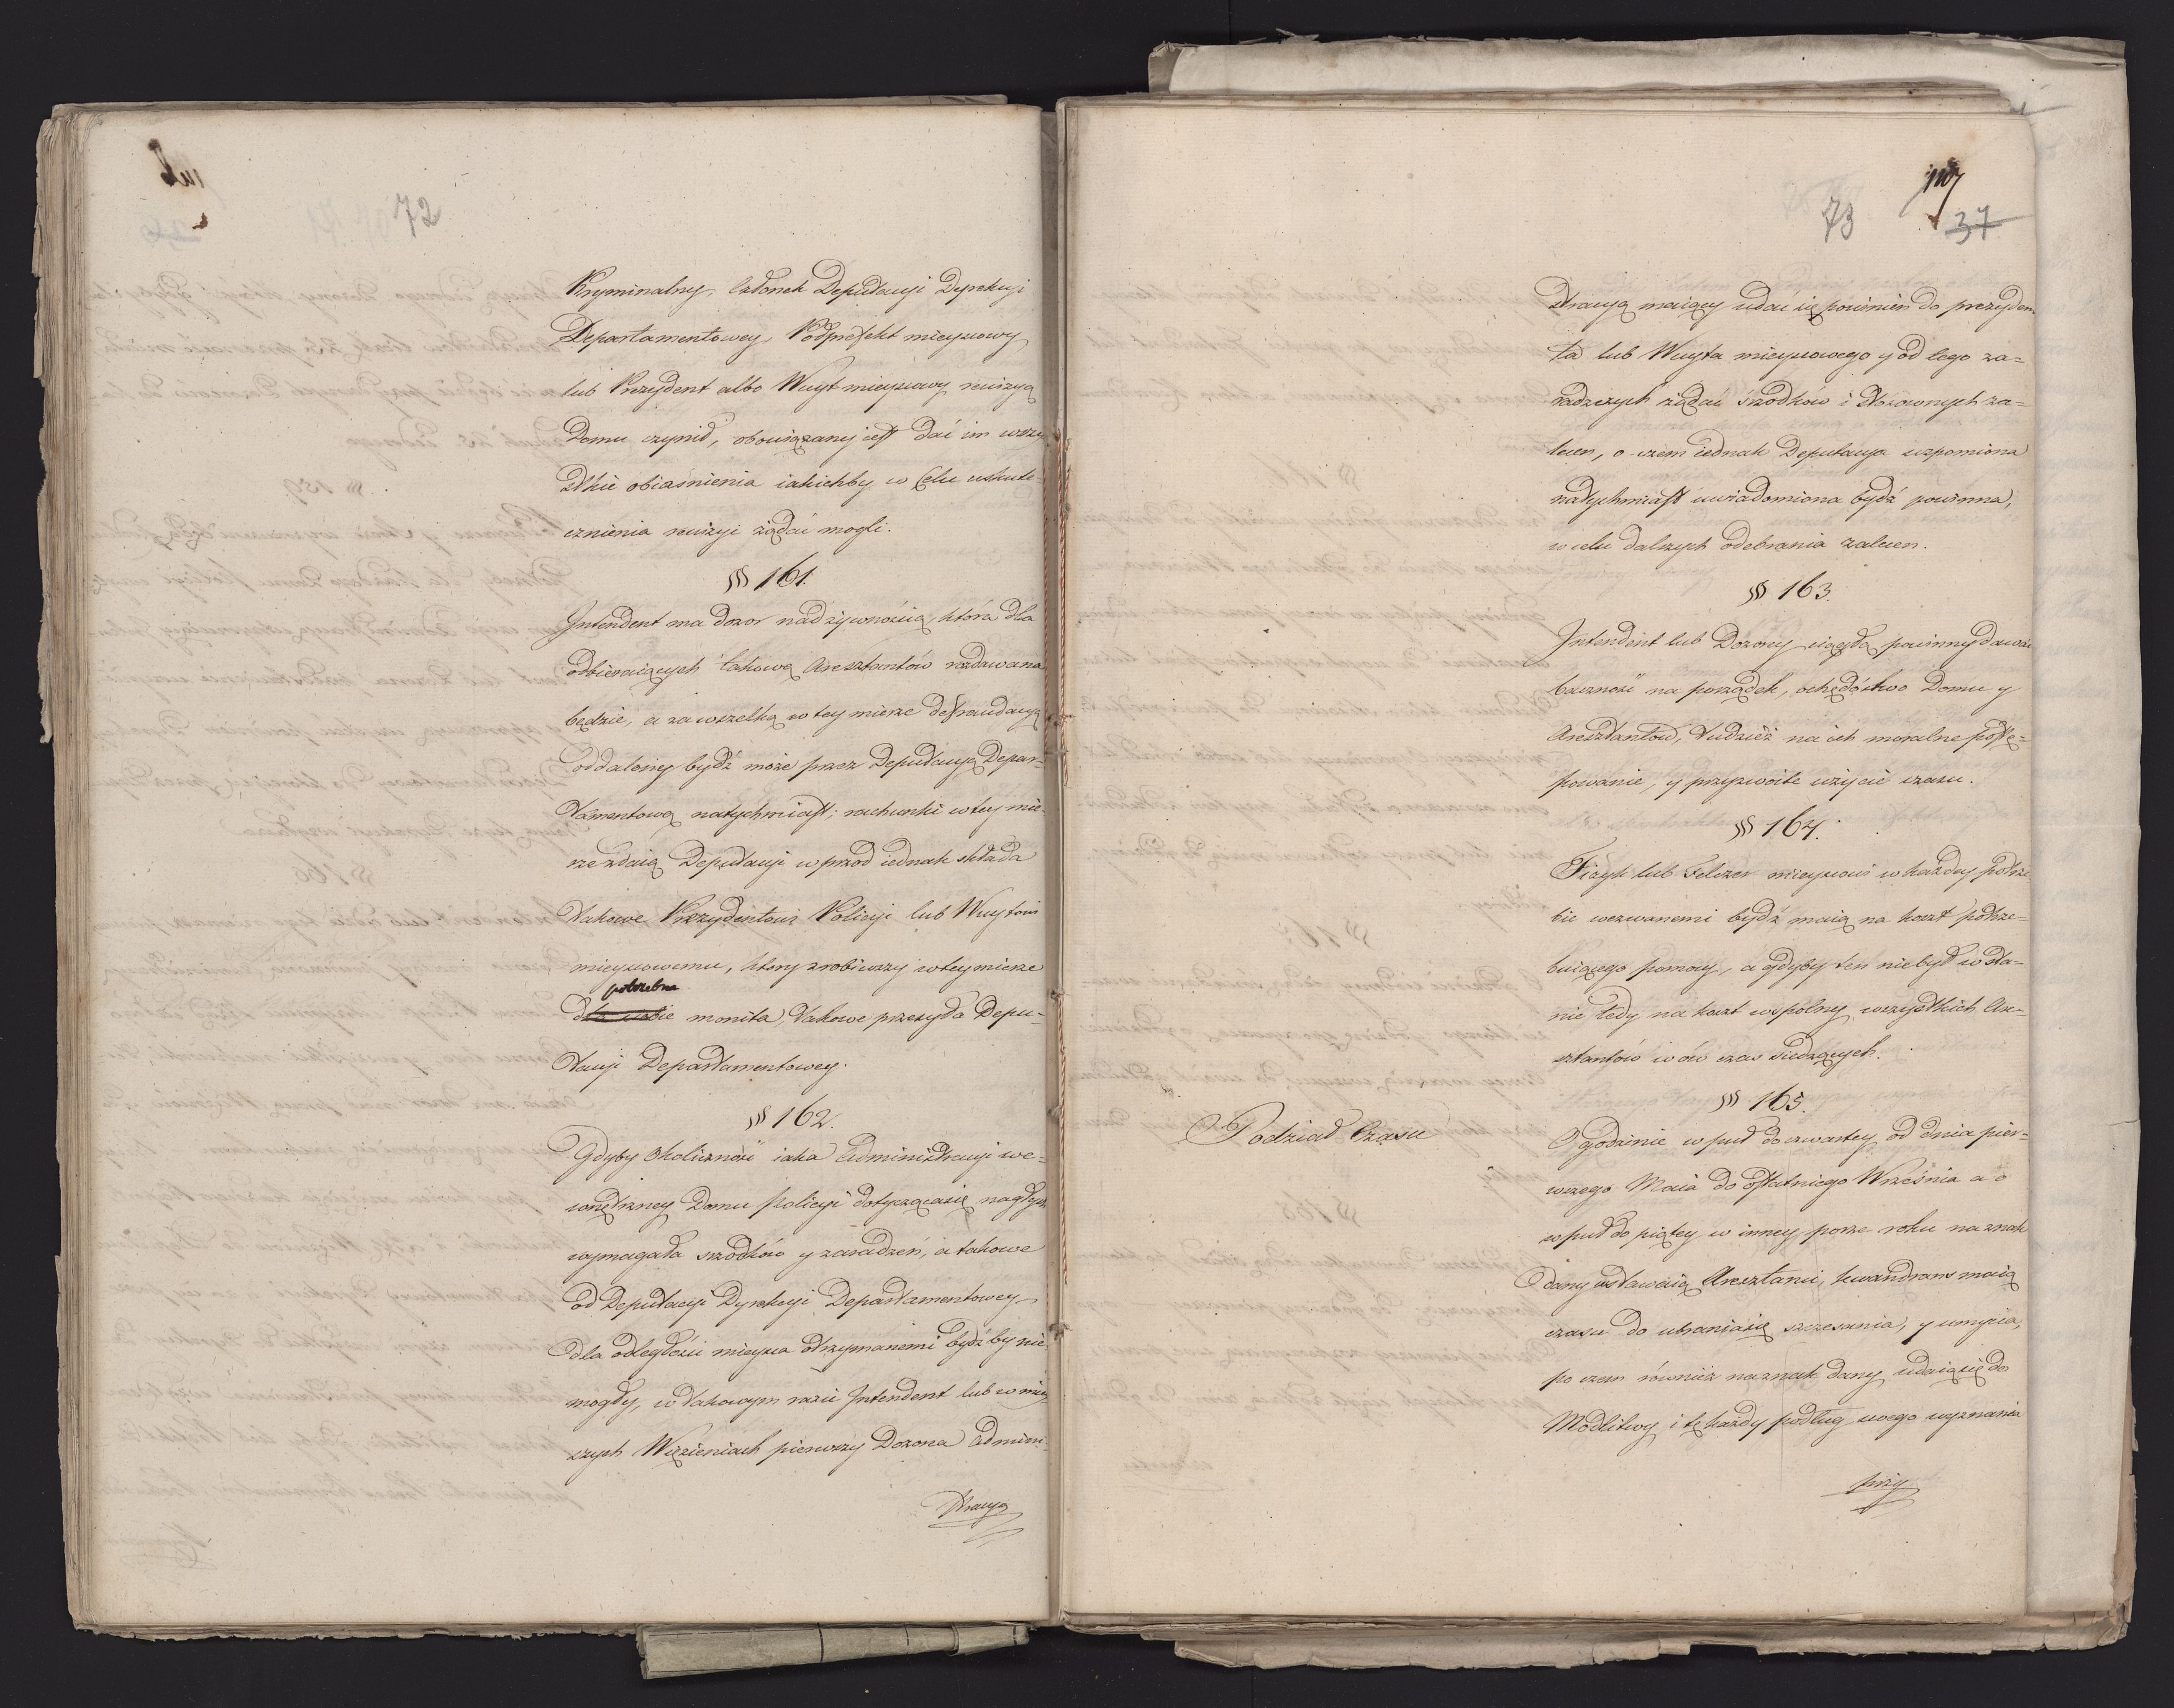 72
Kryminalny, Członek Deputacyi Dyrekcyi
Departamentowey, Podprefekt mieyscowy
lub Prezydent albo Wuyt mieyscowy rewizyą
Domu czynił, obowiązany jest dać im wszy
stkie obiaśnienia iakichby w Celu uskute-
cznienia rewizyi żądać mogli.
§§ 161.
Intendent ma dozor nad żywnością, która dla
odbieraiących takową Aresztantów rozdawana
będzie, a za wszelką w tey mierze defraudacyą
oddalony bydź może przez Deputacyą Depar-
tamentową natychmiast; rachunki w tey mie-
rze zdaią Deputacyi wprzod iednak składa
takowe Prezydentowi Policyi lub Wuytowi
mieyscowemu, ktory zrobiwszy w tey mierze
potrzebne
dla siebie monita, takowe przesyła Depu-
tacyi Departamentowey.
§§ 162.
Gdyby okoliczność iaka Administracyi we-
wnętrzney Domu Policyi dotycząca się nagłych
wymagała srzodków y zaradzeń, a takowe
od Deputacyi Dyrekcyi Departamentowey
dla odległości mieysca otrzymanemi bydź by nie
mogły, w takowym razie Intendent lub w niey-
szych Więzieniach pierwszy Dozorca Admini-
stracyą
107
73 37
stracyą maiący udać się powinien do prezyden
ta lub Wuyta mieyscowego y od tego za-
radczych żądać śrzodków i stosownych za-
lecen, o czem iednak Deputacya wspomiona
natychmiast uwiadomiona bydź powinna,
w celu dalszych odebrania zalecen.
§§ 163.
Intendent lub Dozorcy ciągłą powinny dawać
baczność na porządek, ochędóstwo Domu y
Aresztantów, tudzież na ich moralne postę-
powanie, y przyzwoite użycie czasu.
§§ 164.
Fizyk lub Felczer mieyscowi w każdey potrze
bie wezwanemi bydź maią na koszt potrze-
buiącego pomocy, a gdyby ten niebył w sta-
nie tedy na koszt wspólny wszystkich Are-
sztantów w ów czas siedzących.
§§ 165.
Podział Czasu
O godzinie w puł do czwartey od dnia pier-
wszego Maia do ostatniego Września a o
w puł do piątey w inney porze roku na znak
dany wstawaią Aresztanci, kwandrans maią
czasu do ubrania się szczesania, y umycia,
po czem równiż na znak dany udaią się do
Modlitwy i tę każdy podług swego wyznania
przy